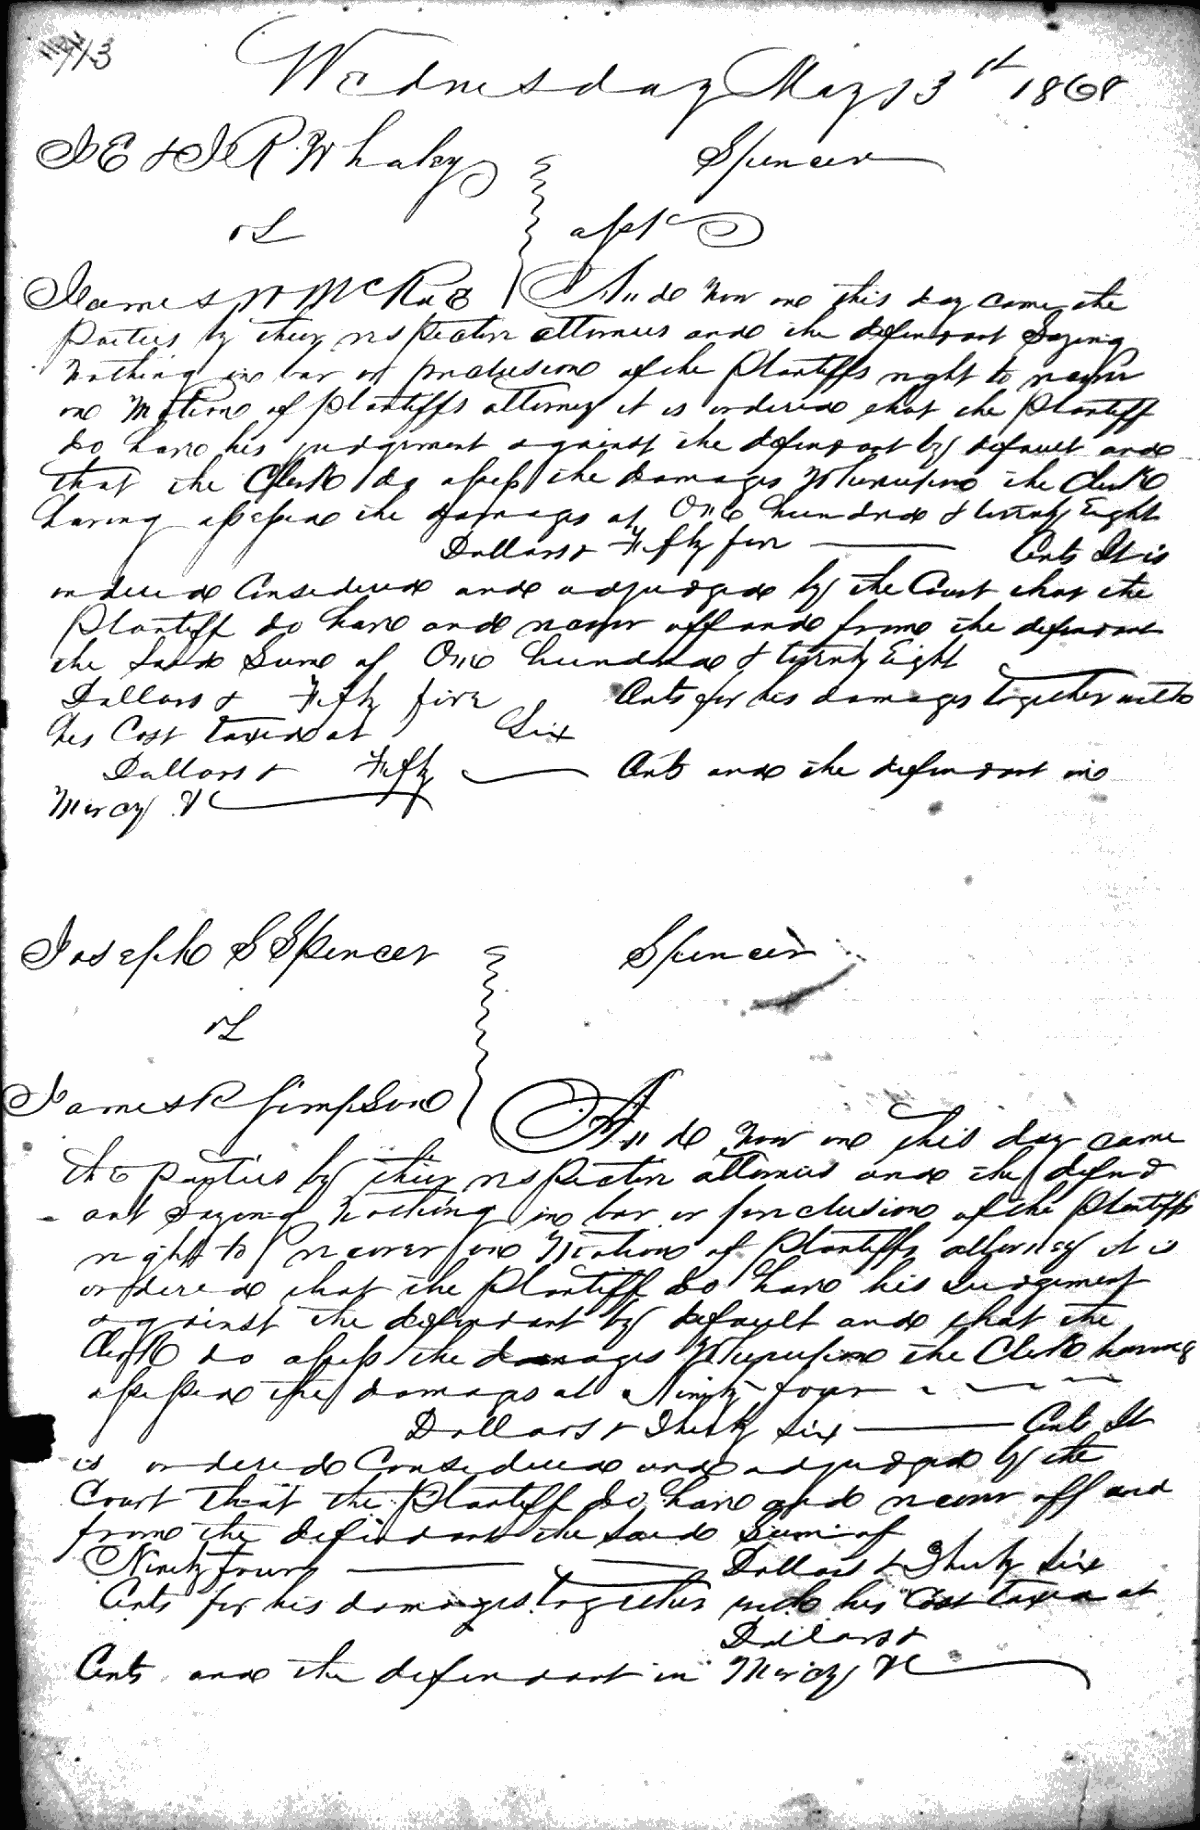 113
Wednesday May 13st 1868
J E & J R Whaley Spencer
vs apt
James W McRae And now on this day came the
parties by their respective attornies and the defendant Saying
Nothing in bar or preclusion of the Plantiffs right to recover
on Motion of plantiffs attorney it is ordered that the Plantiff
do have his judgement against the defendant by default and
that the Clerk do assess the damages Whereupon the Clerk
having assessed the damages at One hundred & twenty Eight
Dollars & Fifty five Cents It is
ordered Considered and adjudged by the Court that the
Plantiff do have and recover off and from the defendant
the Said Sum of One hundred & twenty Eight
Dollars & Fifty five Cents for his damages together with
his Cost taxed at Six
Dollars & Fifty Cents and the defendant in
Mercy &c
Joseph S Spencer Spencer
vs
James R Simpson And now on this day came
the parties by their respective attornies and the defend
- ant Saying Nothing in bar or preclusion of the Plantiffs
right to recover on Motion of Plantiffs attorney it is
ordered that the Plantiff do have his Judgement
against the defendant by default and that the
Clerk do assess the damages Whereupon the Clerk having
assessed the damages at Ninety four
Dollars & Thirty Six Cents It
is ordered Considered and adjudged by the
Court that the Plantiff do have and recover off and
from the defendant the Said Sum of
Ninety four Dollars & Thirty Six
Cents for his damages together with his Cost taxed at
Dollars &
Cents and the defendant in Mercy &c